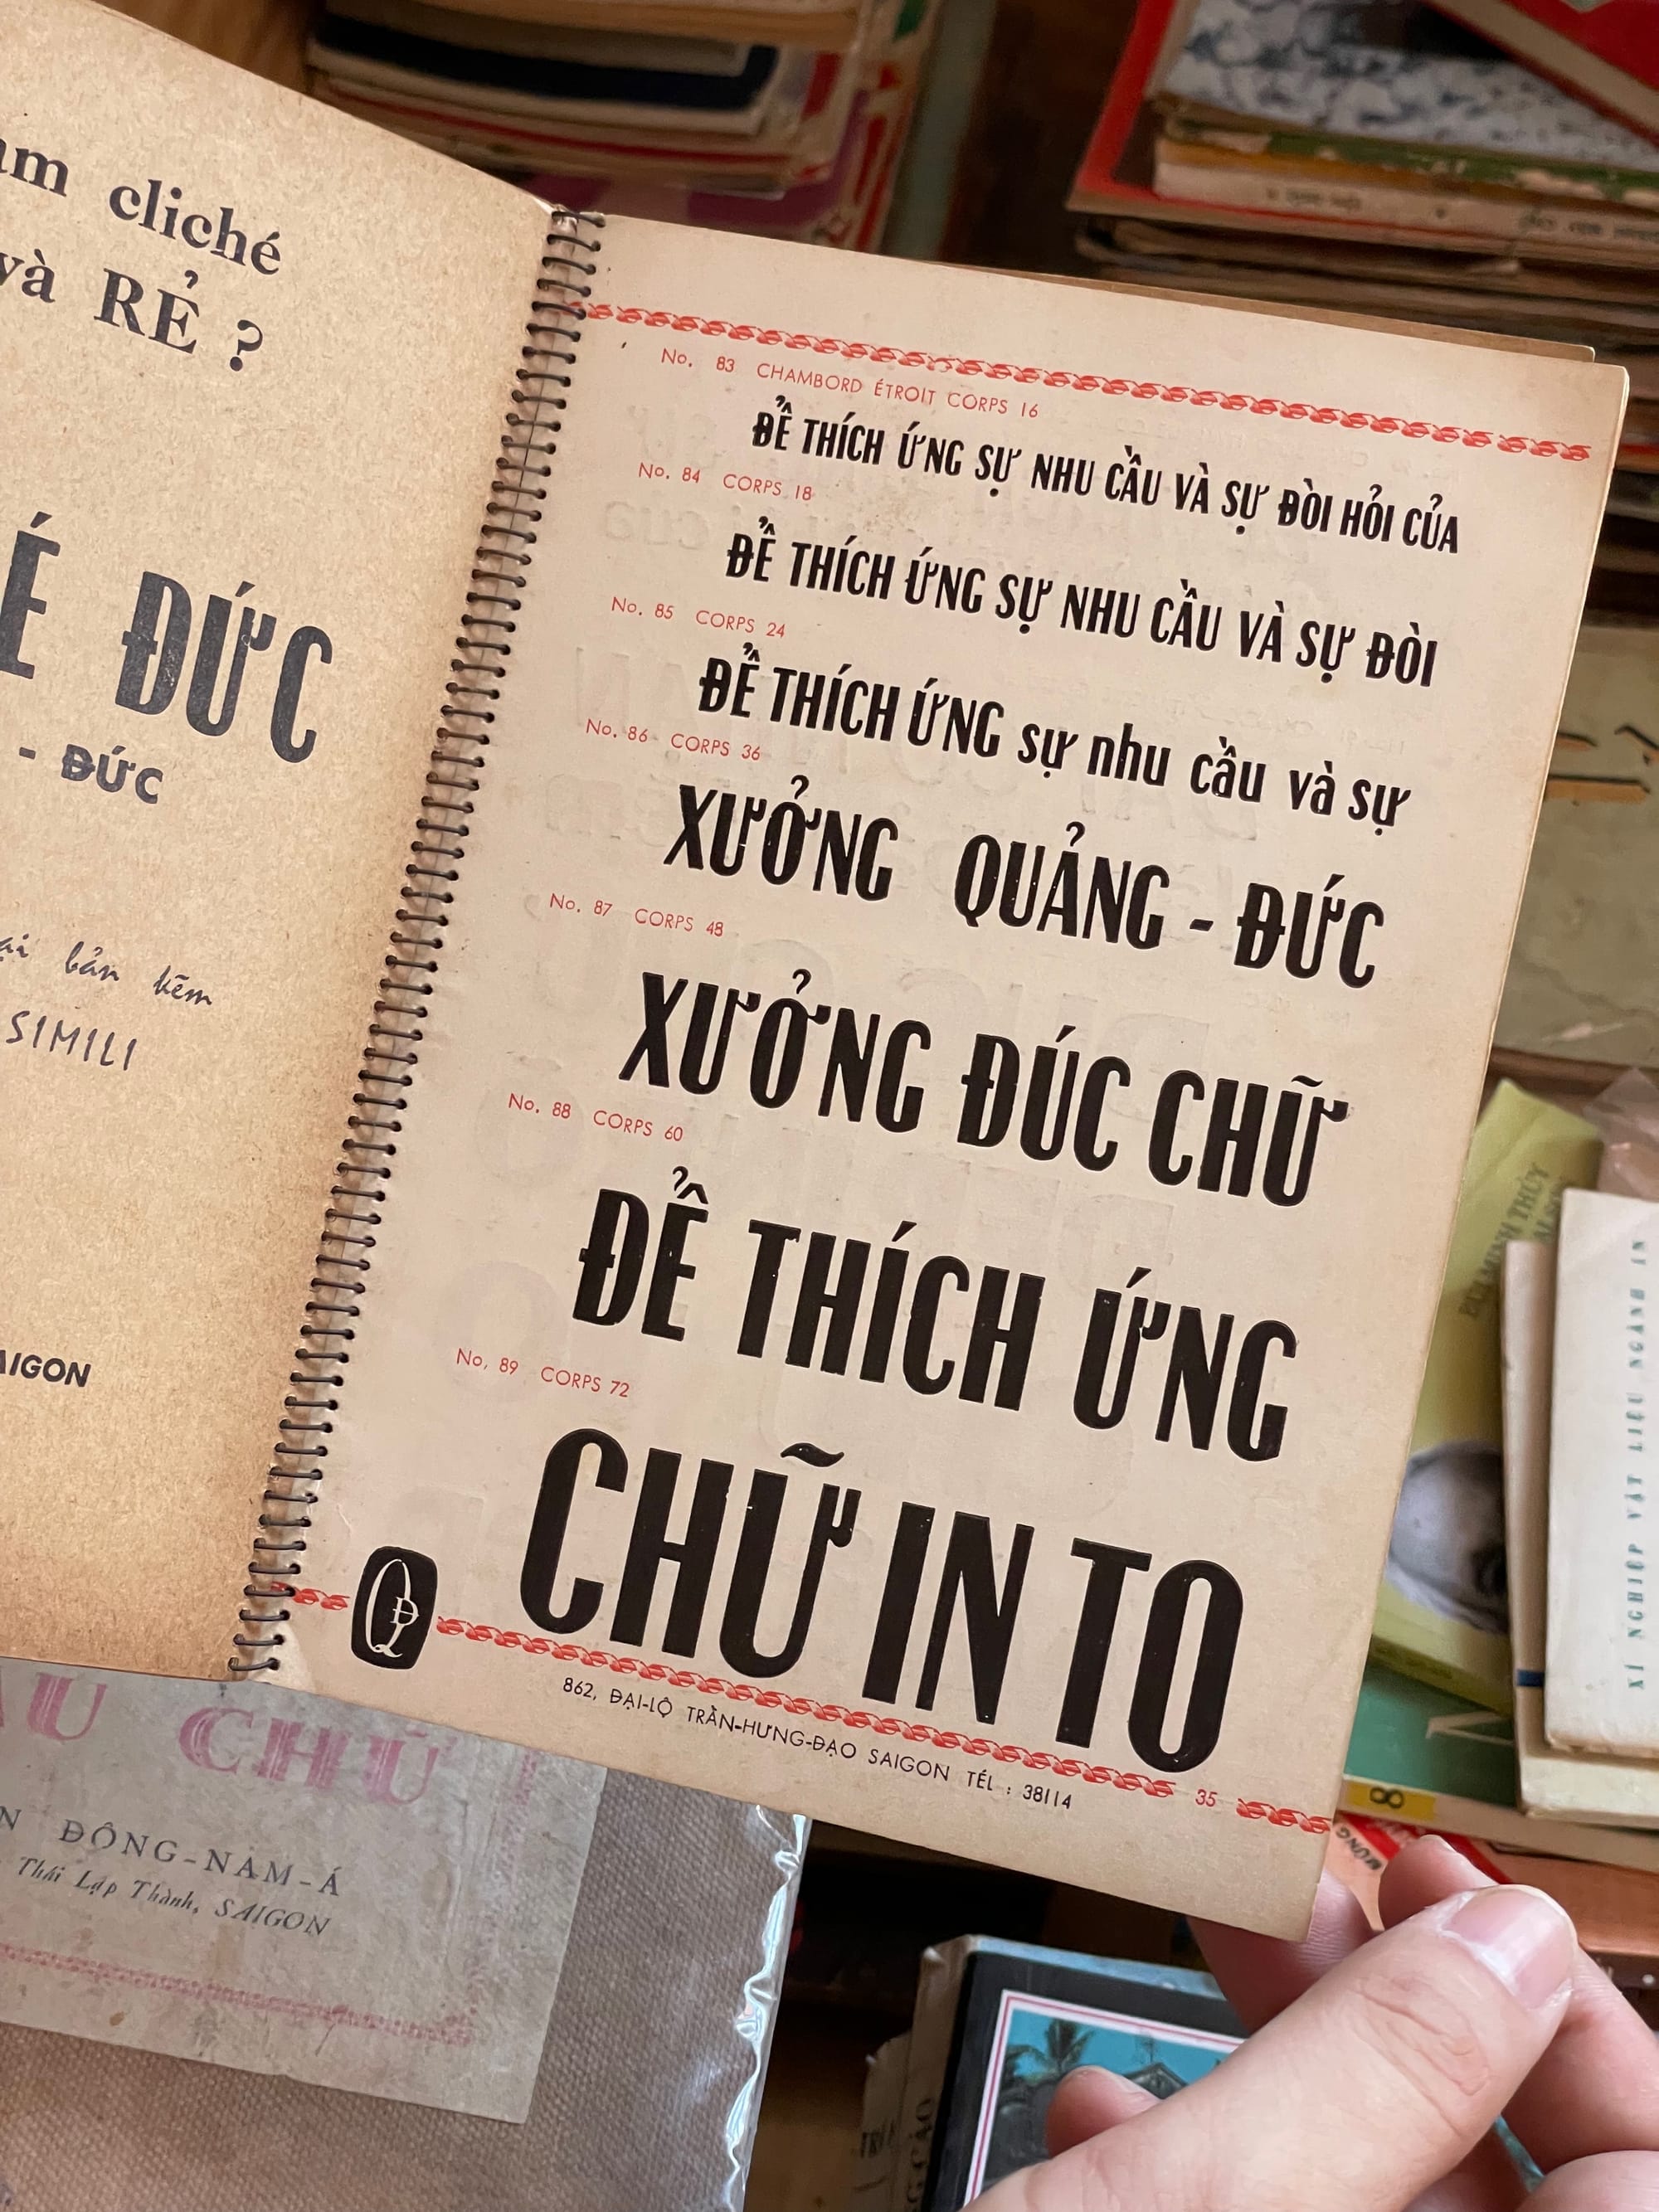 cliché
và RẺ ?
ĐỨC
- ĐỨC
bản kẽm
SIMILI
No. 83 CHAMBORD ÉTROIT CORPS 16
ĐỂ THÍCH ỨNG SỰ NHU CẦU VÀ SỰ ĐÒI HỎI CỦA
No. 84 CORPS 18
ĐỂ THÍCH ỨNG SỰ NHU CẦU VÀ SỰ ĐÒI
No. 85 CORPS 24
ĐỂ THÍCH ỨNG sự nhu cầu và sự
No. 86 CORPS 36
XƯỞNG QUẢNG - ĐỨC
No. 87 CORPS 48
XƯỞNG ĐÚC CHỮ
No. 88 CORPS 60
ĐỂ THÍCH ỨNG
No. 89 CORPS 72
CHỮ IN TO
QĐ
862, ĐẠI-LỘ TRẦN-HƯNG-ĐẠO SAIGON TÉL : 38114
35
CHỮ
ĐÔNG-NAM-Á
Thái Lập Thành, SAIGON
XÍ NGHIỆP VẬT LIỆU NGÀNH IN
8